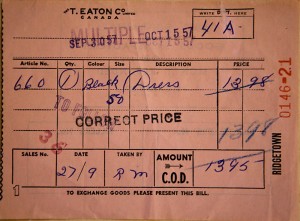 T. EATON Co LIMITED
CANADA
WRITE DEPT. HERE
MULTIPLE
SEP 30 57 OCT 15 57
41A
Article No. Qty. Colour Size DESCRIPTION PRICE
660 1 Black Dress 1398
50
CORRECT PRICE
1398
36
RIDGETOWN
0146-21
SALES No. DATE TAKEN BY AMOUNT C.O.D.
27/9 RM 1395
TO EXCHANGE GOODS PLEASE PRESENT THIS BILL.